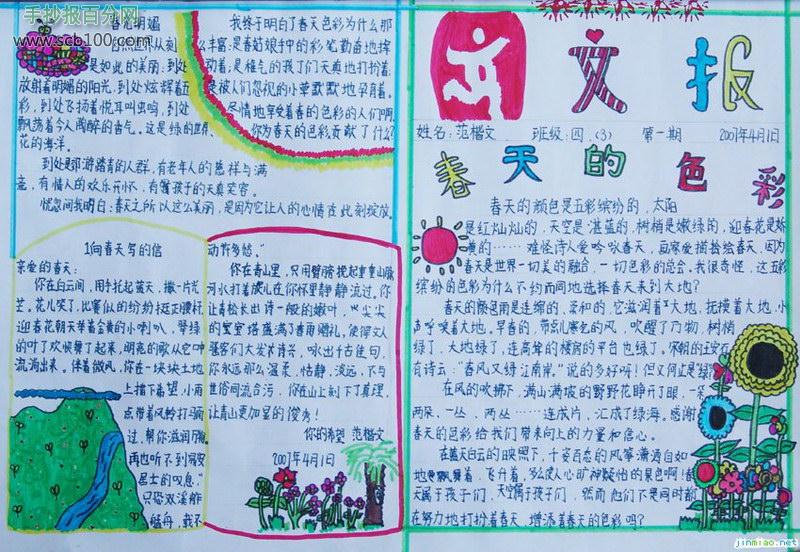 手抄报百分网
www.scb100.com
春光明媚
是如此的美丽：到处
放射着明媚的阳光，到处炫耀着五
彩，到处飞扬着悦耳虫鸣，到处
飘荡着令人陶醉的香气。这是绿的世界，
花的海洋。
到处是郊游踏青的人群，有老年人的慈祥与满
足，有情人的欢乐开怀，有着孩子的天真笑容。
恍忽间我明白：春天之所以这么美丽，是因为它让人的心情在此刻绽放。
我终于明白了春天色彩为什么那
么丰富：是春姑娘手中的彩笔勤苗地挥
动着；是稚气的孩子们天真地打扮着
是被人们忽视的小草默默地孕育着。
尽情地享受着春的色彩的人们啊，
你为春天的色彩贡献了什么？
1向春天写的信
亲爱的春天：
你在白云间，用手托起蓝天，撒一片光
芒。花儿笑了，比赛似的纷纷挺正腰杆，
迎春花朝天举着金黄的小喇叭，
的叶丁欢唱舞了起来，明亮的歌从它
流淌出来。伴着微风，你在一块块土地
上描下希望，小雨
点带着风铃打马
过，帮你滋润
再也听不到
居士的叹息"
只恐双溪舴
艋舟，载不
动许多愁。"
你在青山里，只用臂膀挽起重重山脉
河水打着旋儿在你怀里静静流过。你
让青松长出诗一般的嫩叶，
的望望塔蓬满了春雨赠礼，使得文人
骚客们大发诗兴，咏出千古佳句，
你永远那么温柔，恬静，淡远，不与
世俗同流合污，你在山上刻下了真理，
让青山更加显的俊秀！
你的希望 范楷文
2007年4月1日
语文报
姓名：范楷文 班级：四.(3) 第一期 2007年4月1日
春天的色彩
春天的颜色是五彩缤纷的，太阳
是红灿灿的，天空是湛蓝的，树梢是嫩绿的，迎春花是娇
黄的……难怪诗人爱吟咏春天，画家爱描绘春天，因为
春天是世界一切美的融合，一切色彩的总会。我很奇怪，这五彩
缤纷的色彩为什么不约而同地选择春天来到大地？
春天的颜色雨是连绵的，柔和的，它滋润着大地，抚摸着大地，小
声呼唤着大地。早春的，带乱寒气的风，吹醒了万物，树梢
绿了，大地绿了，连高耸的楼房的平台也绿了。宋朝的王安石
有诗云："春风又绿江南岸。"说的多好呵！
在风的吹拂下，满山满坡的野野花睁开了眼，一朵
两朵，一丛、两丛……连成片，汇成了绿海。感谢
春天的色彩给我们带来向上的力量和信心。
在蓝天白云的映照下，千姿百态的风筝潇洒自如
地飘舞着，飞升着，多么使人心旷神疑怡的景色啊！春
天属于孩子们，天空属于孩子们，然而他们不是同时都
在努力地打扮着春天，增添着春天的色彩吗？
jinmiao.net